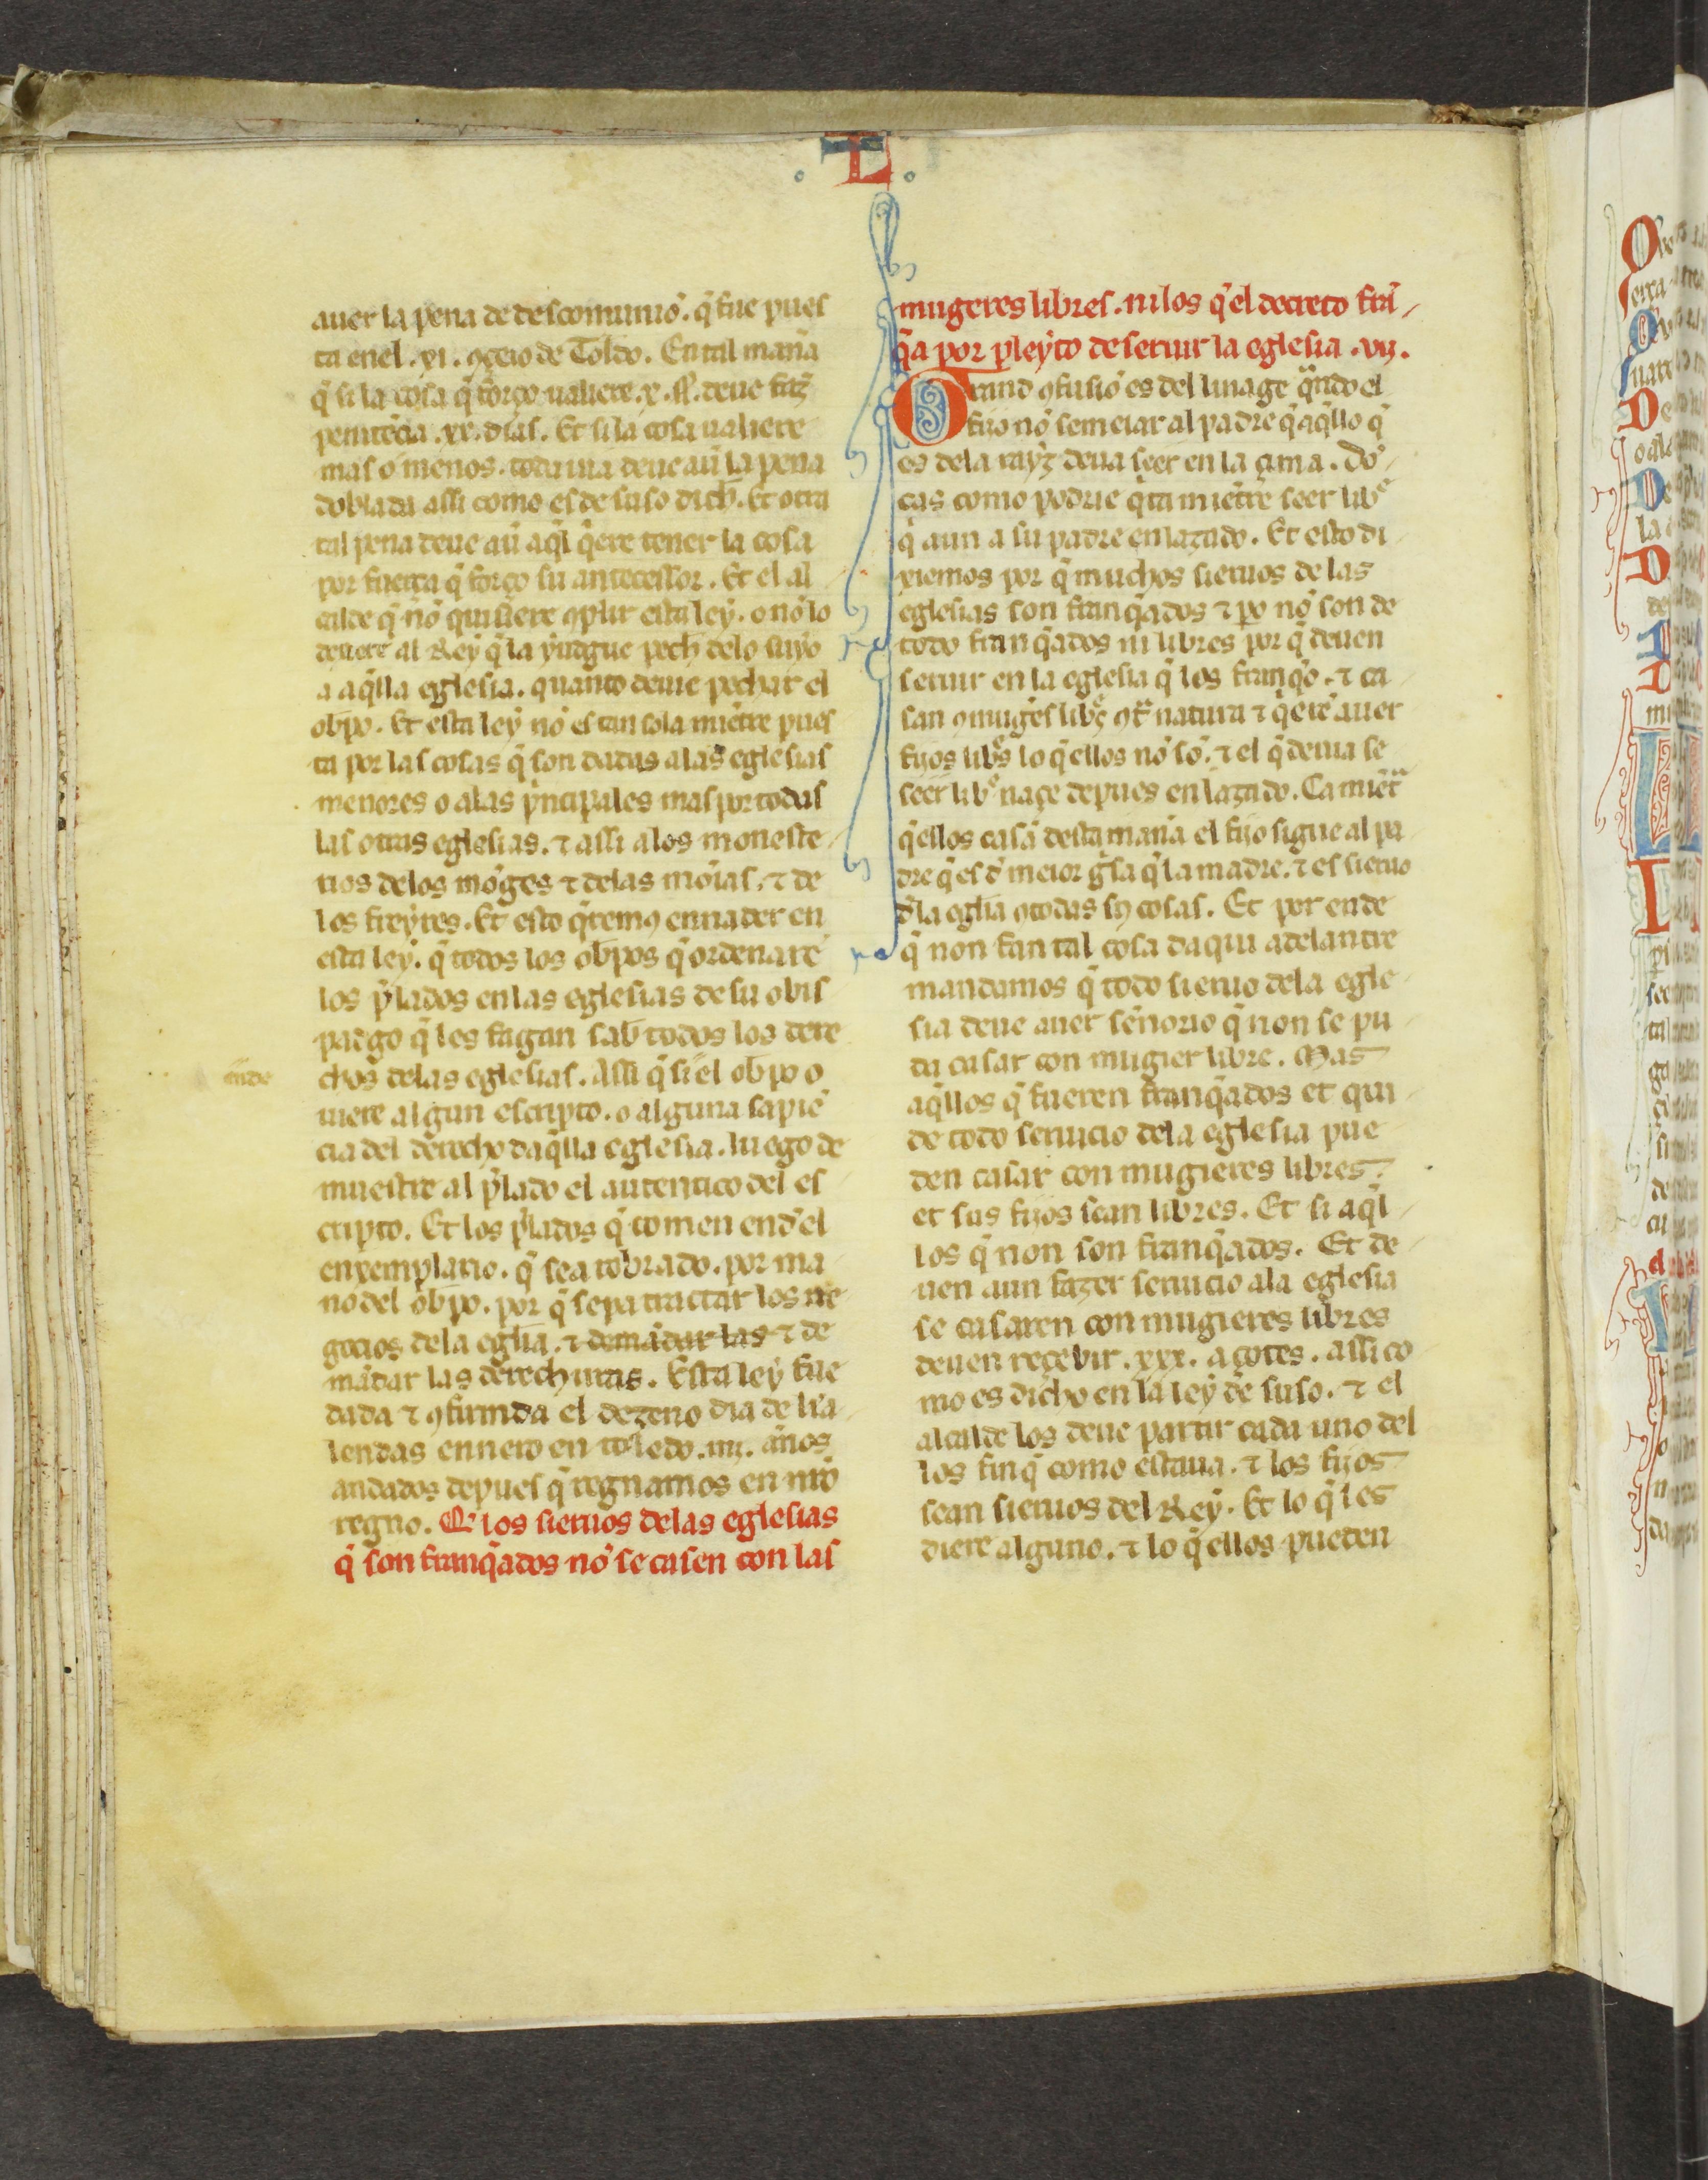 . L .
auer la pena de descomunio᷄. q̄ fue pues
ta enel .xi. ꝯçeio de Toldo. En tal man̄a
q̄ si la cosa q̄ forço ualiere .x. ſſ. deue faz̄
penite᷄cia .xx. dias. Et si la cosa ualiere
mas o menos. toda uia deue au᷄ la pena
doblada assi como es de suso dich̄. Et otra
tal pena deue au᷄ aq̄l q̄ere tener la cosa
por fuerça q̄ forço su antecessor. Et el al
calde q̄ no᷄ quisiere ꝯplir esta ley. o no᷄ lo
deuere al Rey q̄ la yudgue pech̄ delo suyo
a aq̄lla eglesia. quanto deuie pechar el
obpo. Et esta ley no᷄ es tan sola mie᷄tre pues
ta por las cosas q̄ son dadas alas eglesias
menores o alas p̄ncipales mas por todas
las otras eglesias. ⁊ assi alos moneste
rios delos mo᷄ges ⁊ delas mo᷄ias. ⁊ de
los freyres. Et esto q̄remꝯ ennader en
esta ley. q̄ todos los obpos q̄ ordenare᷄
los p̄lados en las eglesias de su obis
padgo q̄ les fagan sab̄ todos los dere
ende
chos delas eglesias. Assi q̄ si el obpo o
uiere algun escripto. o alguna sapie᷄
cia del derecho daq̄lla eglesia. luego de
muestre al p̄lado el autentico del es
cripto. Et los p̄lados q̄ tomen end̄ el
exemplario. q̄ sea robrado. por ma
no del obpo. por q̄ sepa tractar los ne
gocios dela eglīa. ⁊ dema᷄dar las ⁊ de
ma᷄dar las derechuras. Esta ley fue
dada ⁊ ꝯfirmda el dezeno dia de ka
lendas ennero en toledo .iiij. annos
andados depues q̄ regnamos en nr̄o
regno. Q̄ los sieruos delas eglesias
q̄ son franq̄ados no᷄ se casen con las
mugeres libres. ni los q̄ el decreto fra᷄
q̄a por pleyto de seruir la eglesia .vij.
Grand ꝯfusio᷄ es del linage qᵃndo el
fijo no᷄ semeiar al padre q̄ aq̄llo q̄
es dela rayz deua seer en la çima. Do᷄
cas como podrie q̄ta mie᷄tre seer libᵉ
q̄ aun a su padre enlazado. Et esto di
xiemos por q̄ muchos sieruos de las
eglesias son franq̄ados ⁊ ꝑo no᷄ son de
todo franq̄ados ni libres por q̄ deuen
seruir en la eglesia q̄ los franq̄o. ⁊ ca
san ꝯ muges̄ libᵉs ꝯtᵃ natura ⁊ q̄ere᷄ auer
fijos libᵉs lo q̄ ellos no᷄ so᷄. ⁊ el q̄ deuia se
seer libᵉ naçe depues enlazado. Ca mie᷄tᵃ
q̄ ellos casa᷄ desta man̄a el fijo sigue al pa
dre q̄ es d̄ meior g̃sa q̄ la madre. ⁊ es sieruo
d̄la eglīa ꝯ todas sꝯ cosas. Et por ende
q̄ non fan tal cosa daqui adelantre
mandamos q̄ todo sieruo dela egle
sia deue auer sennorio q̄ non se pu
da casar con mugier libre. Mas
aq̄llos q̄ fueren franq̄ados et qui
de todo seruicio dela eglesia pue
den casar con mugieres libres.
et sus fijos sean libres. Et si aq̄l
los q̄ non son franq̄ados. Et de
uen aun fazer seruicio ala eglesia
se casaren con mugieres libres
deuen reçebir .xxx. açotes. assi co
mo es dicho en la ley de suso. ⁊ el
alcalde los deue partir cada uno del
los finq̄ como estaua. ⁊ los fijos
sean sieruos del Rey. Et lo q̄ les
diere alguno. ⁊ lo q̄ ellos pueden